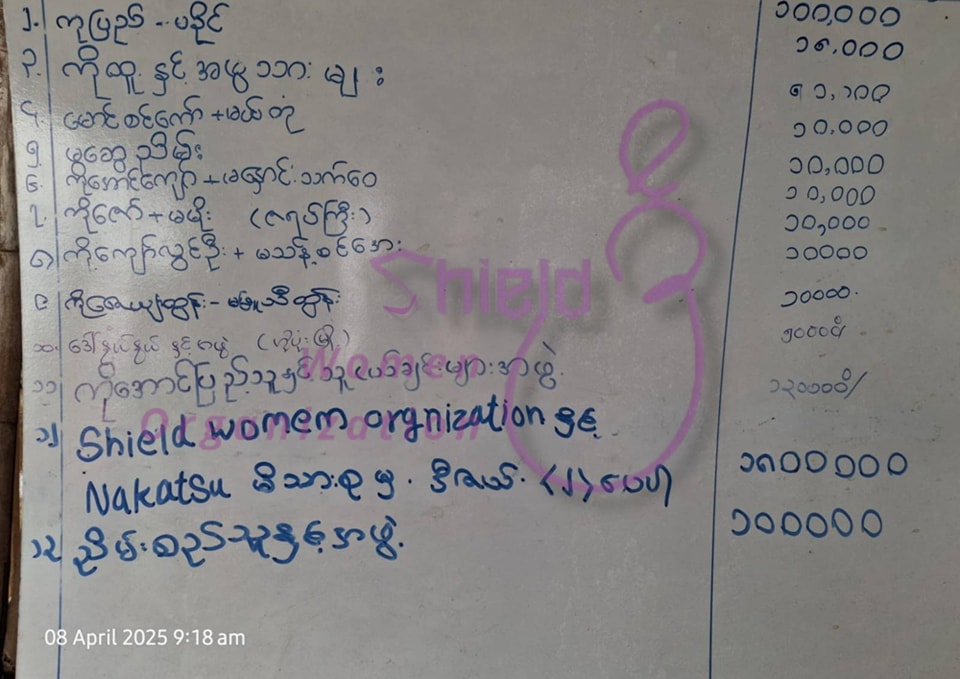 ၂. ကုပြည် - မခိုင် ၁၀၀,၀၀၀
၃. ကိုထူး နှင့် အဖွဲ့သား များ ၁၅,၀၀၀
၄. မောင်စင်ကော် + မယ်တုံ
၅. မွှေးညိမ်း ၁၀,၀၀၀
၆. ကိုအောင်ကျော် + မနှောင်းသက်ဝေ ၁၀,၀၀၀
၇. ကိုဇော် + မမိုး (ဇရပ်ကြီး) ၁၀,၀၀၀
၈ ကိုကျော်လွင်ဦး + မသန့်စင်အေး ၁၀,၀၀၀
၉ ၁၀၀၀၀
၁၀. ဒေါ်နွယ်နွယ် နှင့် အဖွဲ့
၁၁ ကိုအောင်ပြည့်သူနှင့်သူငယ်ချင်းများအဖွဲ့.
Shield
Women
Organization
၁၂ Shield womem orgnization နှင့်
Nakatsu မိသားစု မှ. ဒီဇယ်. (၂) ပေပါ ၁၈၀၀၀၀၀
၁၃ ညိမ်းစည်သူနှင့်အဖွဲ့. ၁၀၀၀၀၀
08 April 2025 9:18 am